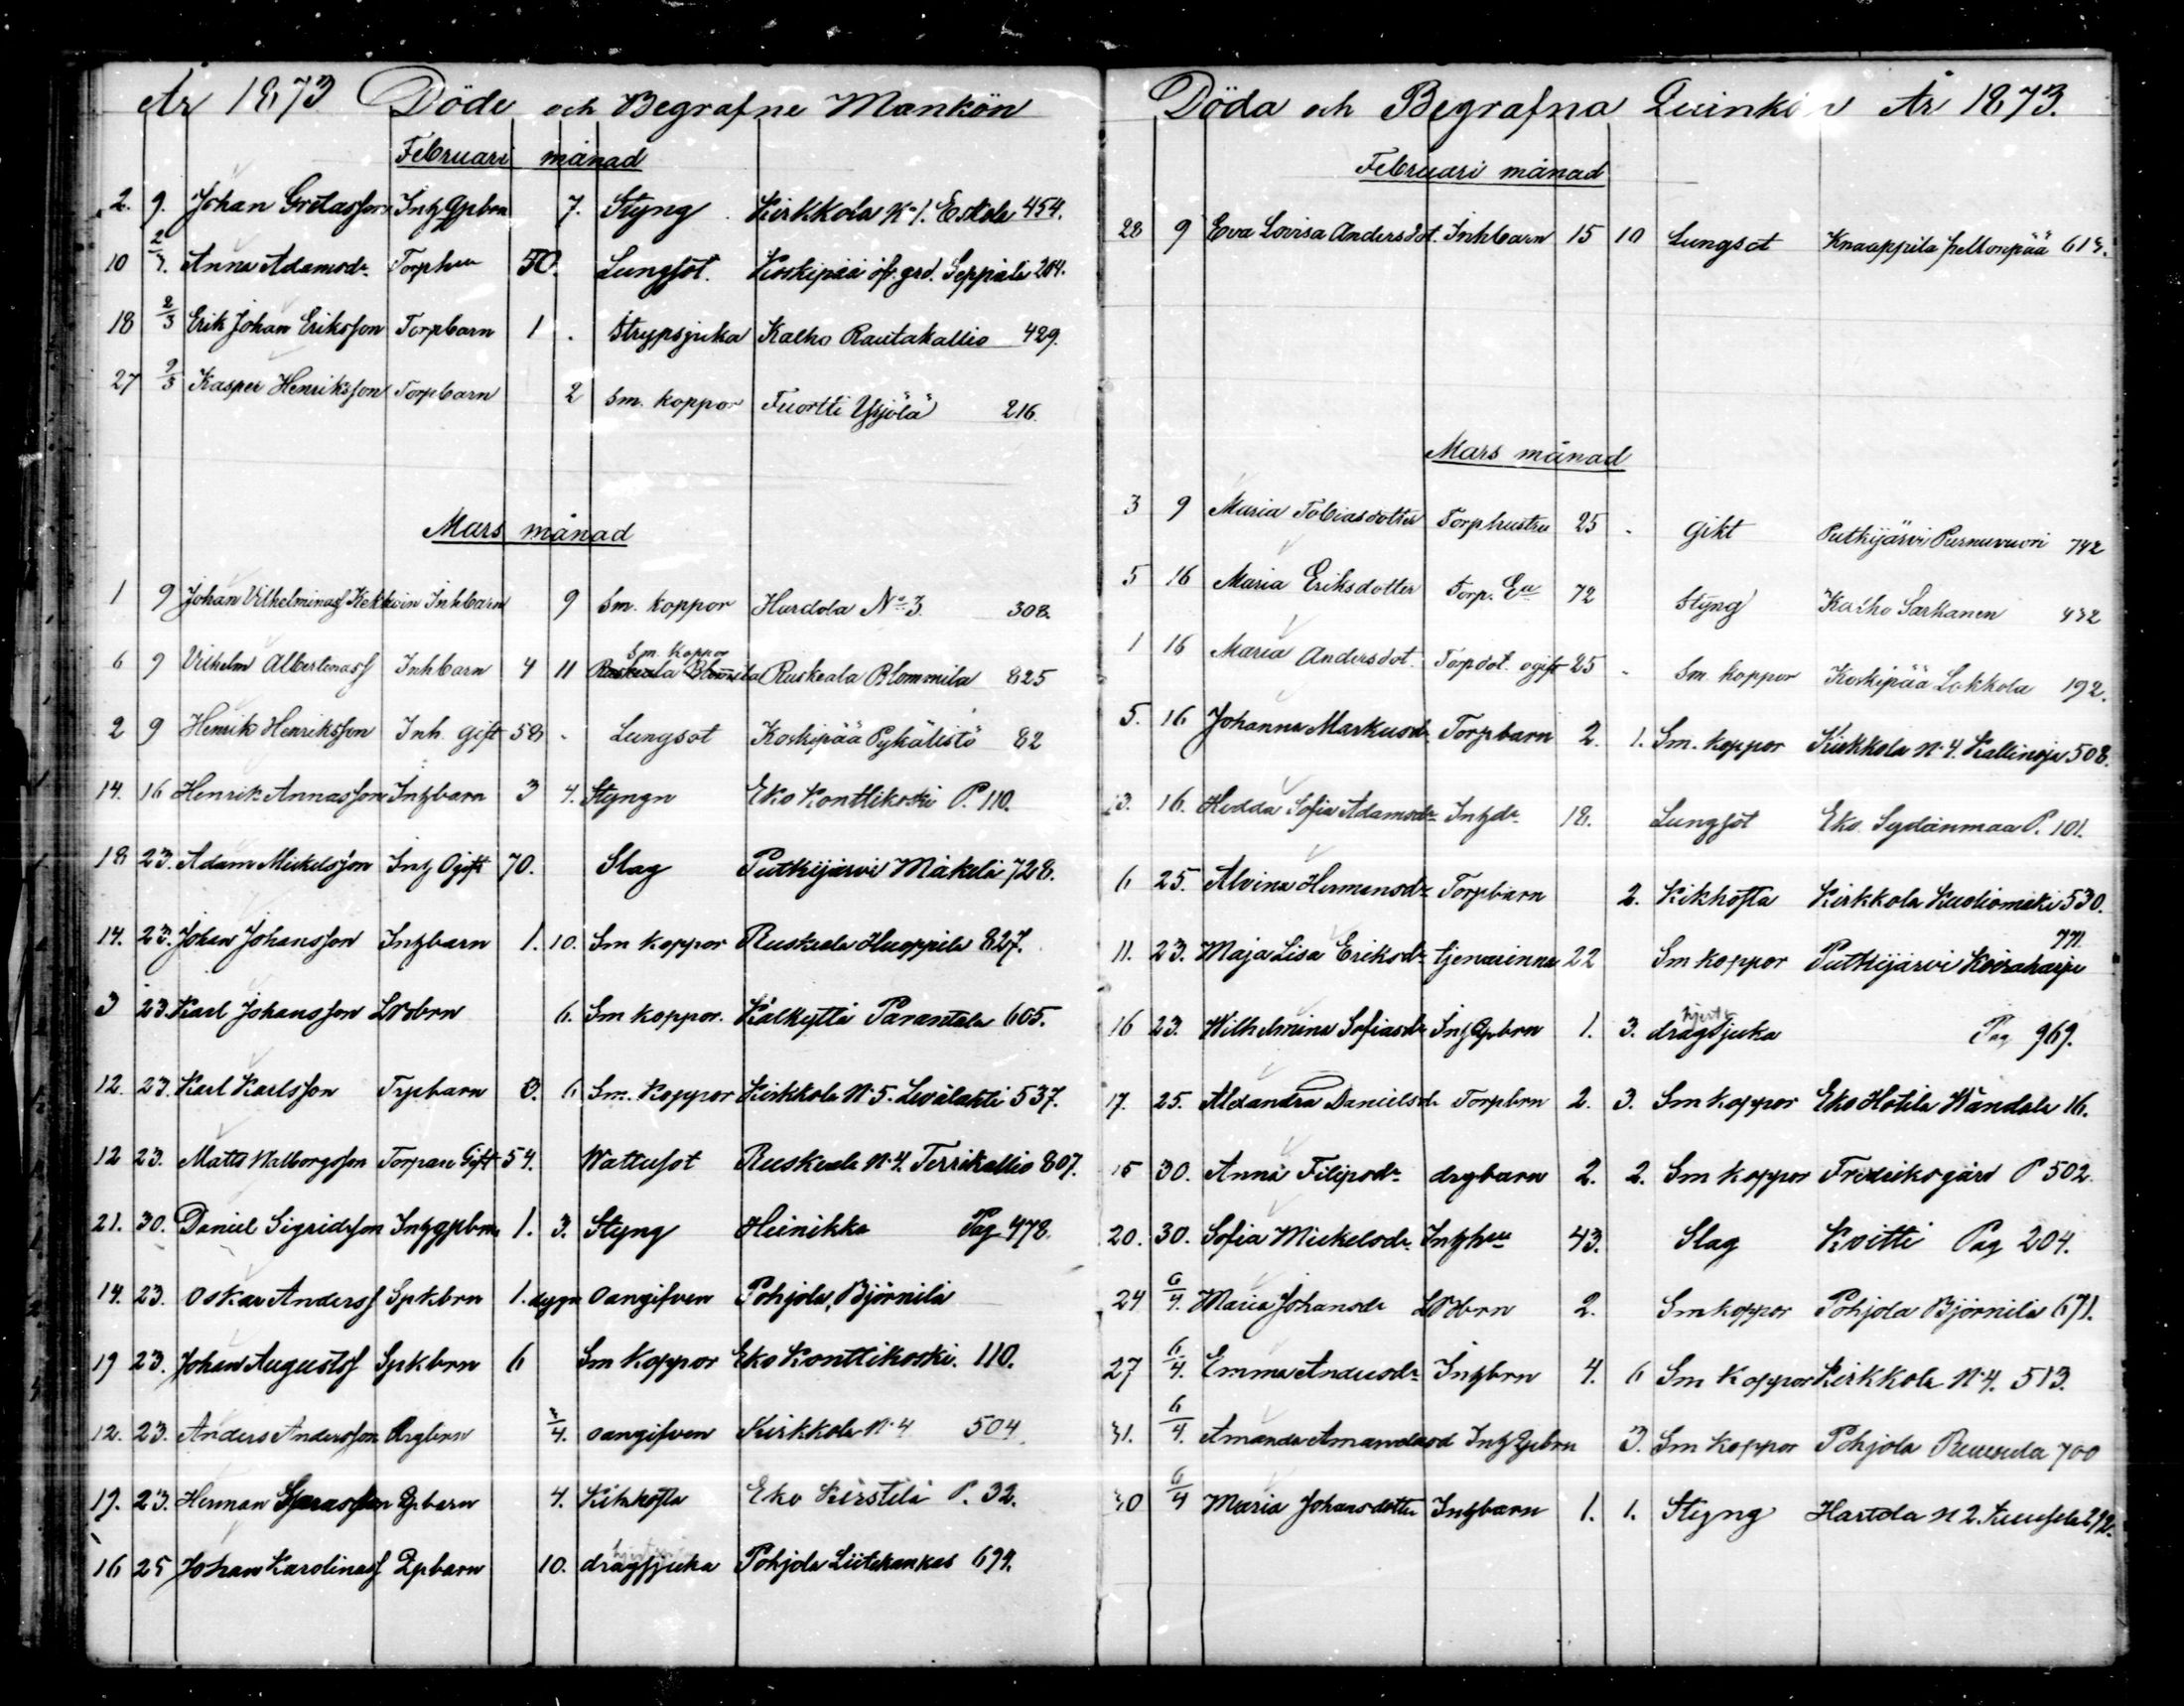 År 1873 Döde och Begrafne Mankön
Februari månad
2. 9. Johan Gretasson Inh Qpbrn 7. Styng Kirkkola N. 1. Eskola 454.
10 2/3. Anna Adamsdr Torphu 50. Lungsot. Koskipää öf. grd. Seppälä 204.
18 2/3 Erik Johan Eriksson Torpbarn 1 . Strypsjuka Kalho Rautakallio 429.
27 2/3 Kasper Henriksson Torpbarn 2 Sm. koppor Tuortti Yrjölä 216.
Mars månad
1 9 Johan Vilhelminass Inhbarn 9 Sm. koppor Hardola No 3. 308.
6 9 Vilhelm Albertinass Inhbarn 4 11 Sm. koppor Ruskeala Blommila 825
2 9 Henrik Henriksson Inh. Gift 58 - Lungsot Koskipää Pykälistö 82
14. 16 Henrik Annasson Inhbarn 3 4. Styngn Eko Konttikoski P. 110.
18 23. Adam Mickelsson Inh Ogift 70. Slag Putkijärvi Mäkelä 728.
14. 23. Johan Johansson Inhbarn 1. 10. Sm koppor Ruskeala Huoppila 827.
3 23. Karl Johansson LBbrn 6. Sm koppor. Kälkyttä Parantala 605.
12. 23. Karl Karlsson Trpbarn 3. 6 Sm. Koppor Kirkkola N. 5. Levälahti 537.
12 23. Matts Walborgsson Torpare Gift 54. Wattusot Ruskeala N. 4. Terrikallio 807.
21. 30. Daniel Sigridsson Inhqpbrn 1. 3. Styng Heinikka Pag 478.
14. 23. Oskar Anderss Spkbrn 1. dygn Oangifven Pohjola, Björnilä
19 23. Johan Augustss Spkbrn 6 Sm Koppor Eko Konttikoski. 110.
12. 23. Anders Andersson Drgbrn 3/4. oangifven Kirkkola N. 4 504
19. 23. Herman Qpbarn 4. Kikhosta Eko Kirstilä P. 32.
16 25 Johan Karolinass Qpbarn 10. dragsjuka Pohjola Liitekankas 694.
Döda och Begrafna Quinkön År 1873.
Februari månad
28 9 Eva Lovisa Andersdot. Inhbarn 15 10 Lungsot Knaappila peltonpää
Mars månad
3 9 Maria Tobiasdotter Torphustru 25 - Gikt Putkijärvi Purnuvuori 742
5 16 Maria Eriksdotter Torp. Ea 72 Styng Kalho Sarkanen 432
1 16 Maria Andersdot. Torpdot. ogift 25 - Sm. koppor Koskipää Lakkola 192.
5. 16 Johanna Markusdr Torpbarn 2. 1. Sm. koppor Kirkkola N. 4. Kallinoja 508.
13. 16. Hedda Sofia Adamsdr Inhdr 18. Lungsot Eko. Sydänmaa P. 101.
6 25. Alvina Hermansdr Torpbarn 2. Kikhosta Kirkkola Kuoliomäki 530.
771.
11. 23. Maja Lisa Eriksdr tjenarinna 22 Sm koppor Putkijärvi Koiraharju
16 23. Wilhelmina Sofiasdr Inh Qpbrn 1. 3. dragsjuka Pag 969.
17. 25. Alexandra Danielsdr Torpbrn 2. 3. Sm koppor Eko Hotila Wändälä 16.
15 30. Anna Filipsdr drgbarn 2. 2. Sm koppor Fredriksgård P 502
20. 30. Sofia Mickelsdr. Inhhu 43. Slag Kvitti Pag 204.
24 6/4. Maria Johansdr LBbrn 2. Sm koppor Pohjola Björnilä 671.
27 6/4. Emma Andersdr Inhbrn 4. 6 Sm Koppor Kirkkola N. 4. 513.
31. 6/4. Amanda Amandasd Inh Qpbrn 3. Sm koppor Pohjola 700
30 6/4 Maria Johansdotter Inhbarn 1. 1. Styng Hartola N 2.